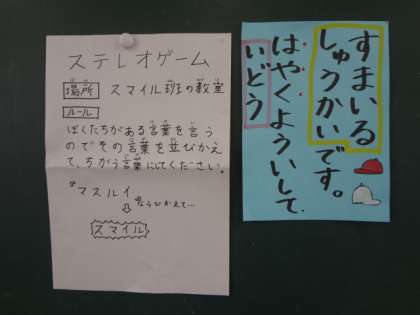 ステレオゲーム
場所 スマイル班の教室
ルール
ぼくたちがある言葉を言う
のでその言葉を並びかえ
て、ちがう言葉にしてください。
マスルイ
ならびかえて…
スマイル
すまいる
しゅうかいです。
はやくよういして
いどう